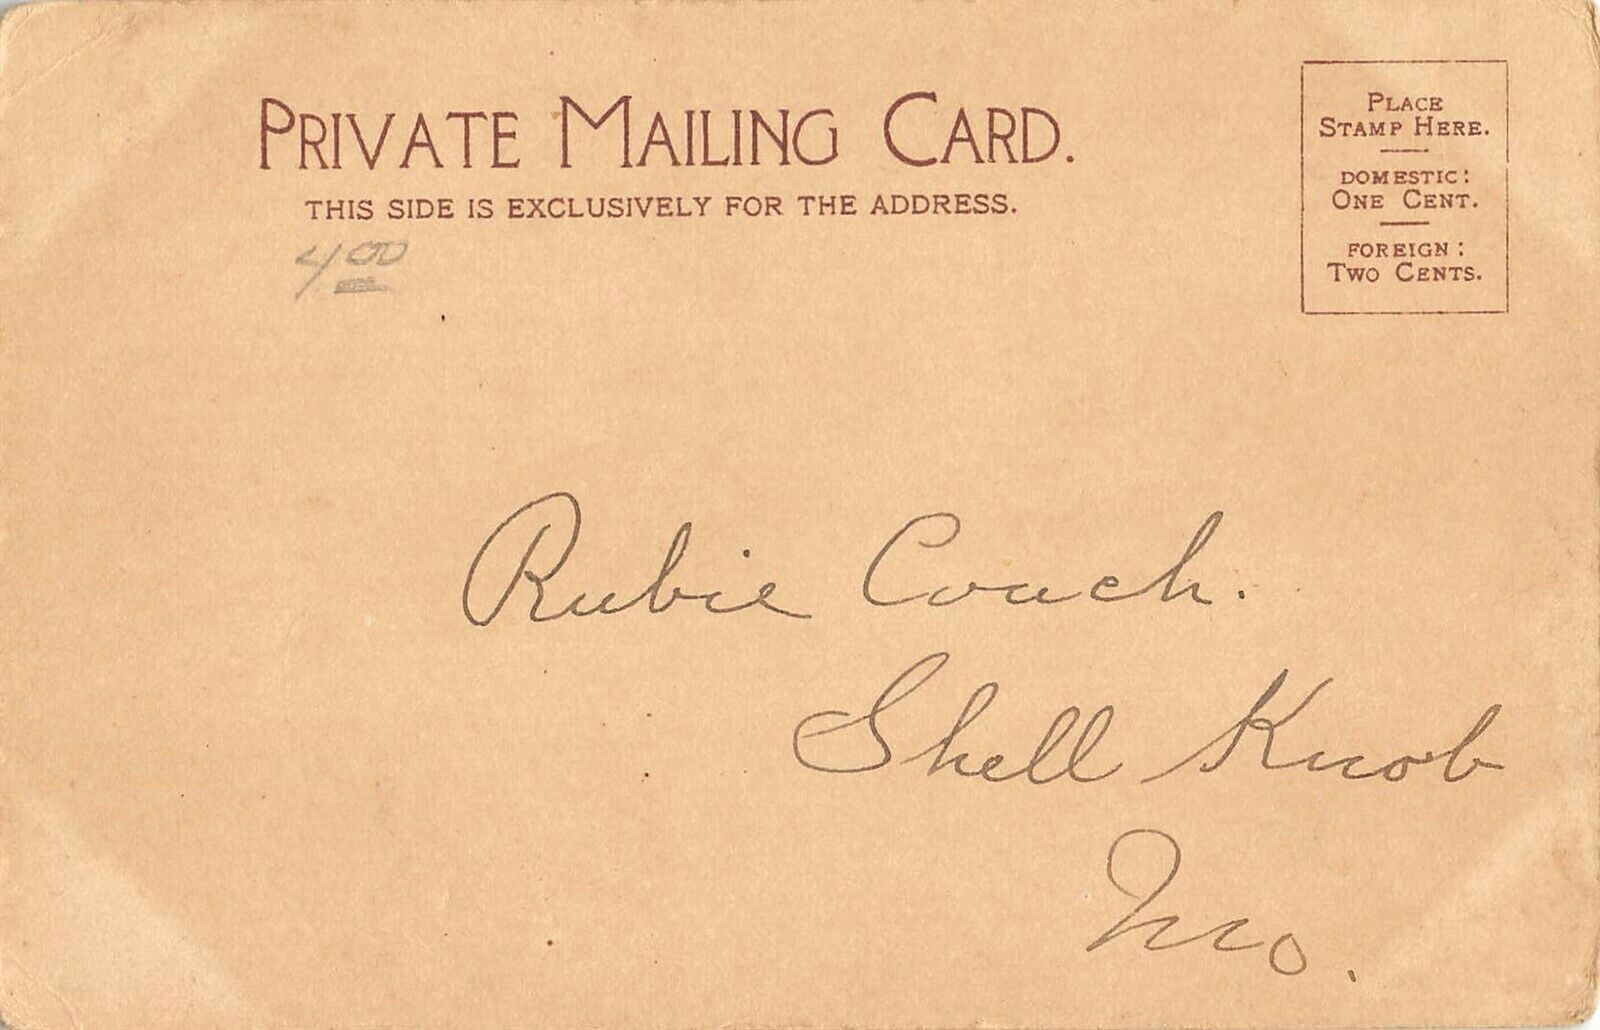 PRIVATE MAILING CARD.
THIS SIDE IS EXCLUSIVELY FOR THE ADDRESS.
4 00
PLACE
STAMP HERE.
DOMESTIC:
ONE CENT.
FOREIGN:
TWO CENTS.
Rubie Couch.
Shell Knob
Mo.